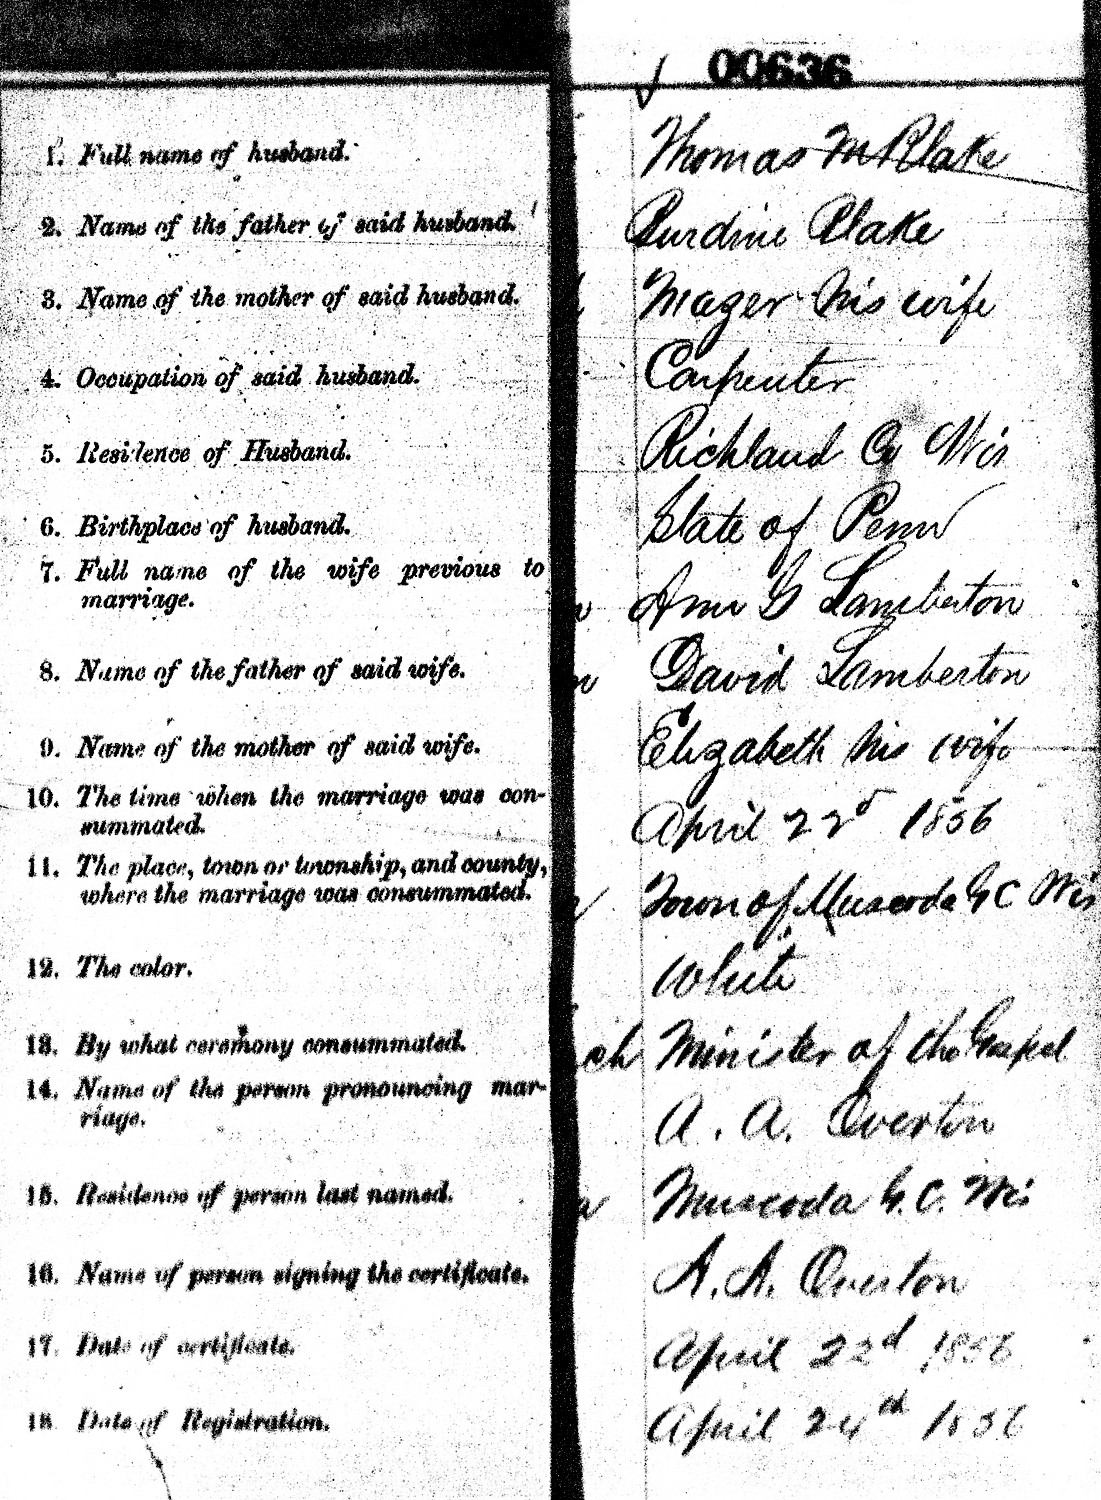 00636
1. Full name of husband. Thomas M Blake
2. Name of the father of said husband. Purdine Blake
3. Name of the mother of said husband. Mazer his wife
4. Occupation of said husband. Carpenter
5. Residence of Husband. Richland Co Wis
6. Birthplace of husband. State of Penn
7. Full name of the wife previous to
marriage. Ann G Lamberton
8. Name of the father of said wife. David Lamberton
9. Name of the mother of said wife. Elizabeth his wife
10. The time when the marriage was con-
summated. April 22d 1856
11. The place, town or township, and county,
where the marriage was consummated. Town of Muscoda G C Wis
12. The color. White
13. By what ceremony consummated. Minister of the Gospel
14. Name of the person pronouncing mar-
riage. A. A. Overton
15. Residence of person last named. Muscoda G. C. Wis
16. Name of person signing the certificate. A. A. Overton
17. Date of certificate. April 22d 1856
18 Date of Registration. April 24th 1856